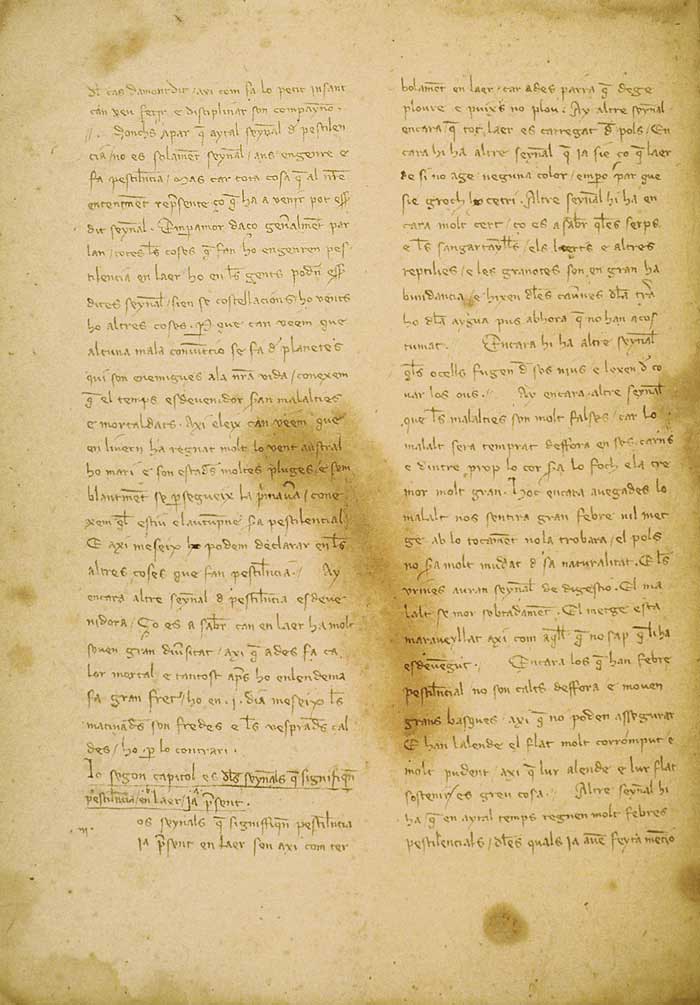 dl cas damont dit / axi com fa lo petit infant
can veu ferir e disciplinar son companyno .
Donchs apar q̄ aytal seynal d pestilen
cia / no es solament seynal / ans engenre e
fa pestilēcia / Mas car tota cosa q̄ al nr̄e
enteniment rep̄sente ço q̄ ha a venir pot ess̄
dit seynal . Emp amor daço gen̄alment par
lan / totes l̄s coses q̄ fan ho engenren pes
tilencia en laer ho en l̄s gents podn̄ ess̄
dites seynal / sien se costellacions / ho vents
ho altres coses . P que can veem que
alcuna mala conviccio se fa d planetes
qui son enemigues a la nr̄a vida / conexem
q̄ el temps esdevenidor s̄an malalties
e mortaldats . Axi eleix can veem que
en livern ha regnat molt lo vent austral
ho mari e son estads moltes pluges / e sem
blantment se p̄segueix la p̄mav̄a / cone
xem q̄l estiu e lautumpne s̄a pestilencial
E axi meseix ho podem declarar en l̄s
altres coses que fan pestilēcia . Ay
encara altre seynal d pestilencia esdeve
nidora / Co es a sab̄r can en laer ha molt
soven gran div̄sitat / axi q̄ ades fa ca
lor mortal e tantost ap̄s ho en lendema
fa gran fret / ho en .i. dia meseix l̄s
matinads son fredes e l̄s vesprads cal
des / ho p lo contrari .
Lo segon capitol es dl̄s seynals q̄ signifiq̄n
pestilēcia / en laer / ja p̄sent .
os seynals q̄ signiffiq̄n pestilēcia
ja p̄sent en laer son axi com ter
bolament en laer / car ades parra q̄ dege
ploure e puixs no plou . Ay altre seynal
encara q̄ tot laer es carregat d pols / En
cara hi ha altre seynal q̄ ja sie ço q̄ laer
de si no age neguna color / empo par que
sie groch ho cetri . Altre seynal hi ha en
cara molt cert / co es a sab̄r q̄ les serps
e l̄s sangartaylls / els lerts e altres
reptilies / e les granotes son en gran ha
bundancia / e hixen dles caūnes dla tr̄a
ho dla aygua pus abhora q̄ no han acos
tumat . Encara hi ha altre seynal
q̄ls ocells fugen d sos nius e lexen d co
var los ous . Ay encara altre seynal
que l̄s malalties son molt falses / car lo
malalt sera temprat deffora en ses carns
e dintre prop lo cor s̄a lo foch e la cre
mor molt gran . Hoc encara avegades lo
malalt nos sentira gran febre nil met
ge ab lo tocament no la trobara / el pols
no s̄a molt mudat d sa naturalitat . E l̄s
urines auran seynal de digestio . El ma
lalt se mor sobtadament . El metge esta
maraveyllat axi com aq̄ll q̄ no sap q̄ li ha
esdevengut . Encara los q̄ han febre
pestilēcial no son calts deffora e moven
grans basques / axi q̄ no poden assegurar
E han lalende el flat molt corromput e
molt pudent / axi q̄ lur alende e lur flat
sostenir es greu cosa . Altre seynal hi
ha / q̄ en aytal temps regnen molt febres
pestilēcials / dles quals ja avē feyta mēcio